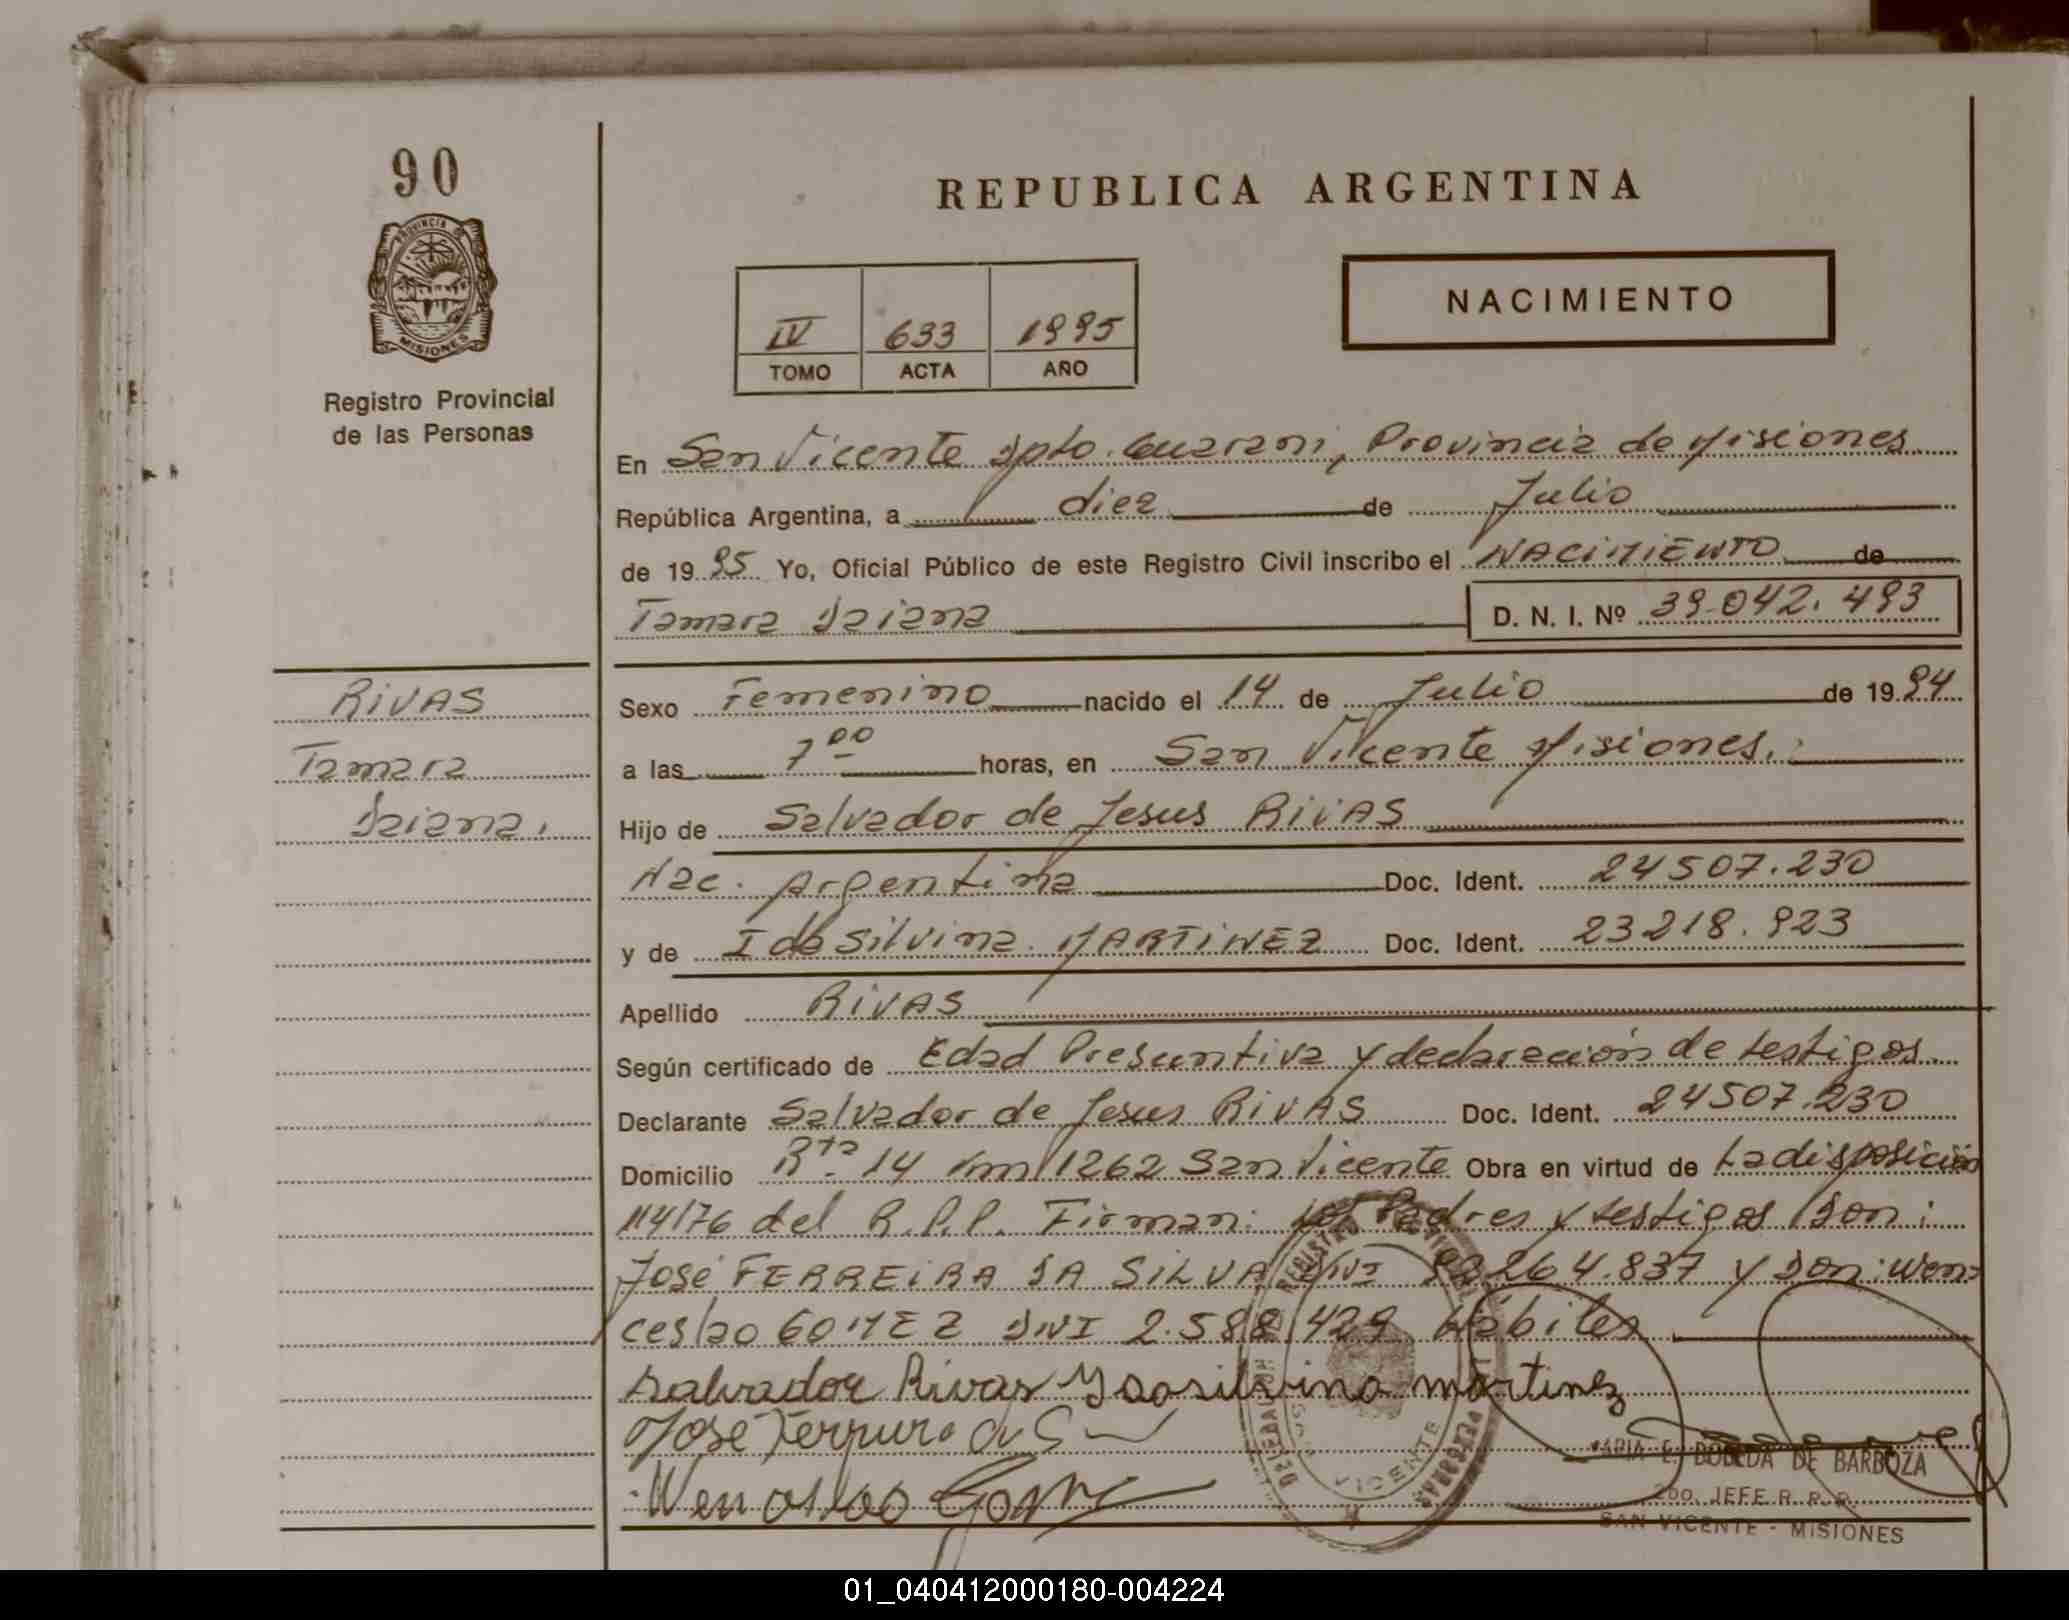 90
PROVINCIA DE
MISIONES
Registro Provincial
de las Personas
REPUBLICA ARGENTINA
IV 633 1995
TOMO ACTA AÑO
NACIMIENTO
En San Vicente Dpto. Guarani, Provincia de Misiones
República Argentina, a diez de Julio
de 1995 Yo, Oficial Público de este Registro Civil inscribo el NACIMIENTO de
Tamara Daiana D. N. I. Nº 39.042.493
RIVAS
Tamara
Daiana.
Sexo Femenino nacido el 14 de Julio de 1994
a las 7 00 horas, en San Vicente Misiones.
Hijo de Salvador de Jesus RIVAS
Nac. Argentina Doc. Ident. 24507.230
y de Ida Silvina MARTINEZ Doc. Ident. 23218.923
Apellido RIVAS
Según certificado de Edad Presuntiva y declaración de testigos.
Declarante Salvador de Jesus RIVAS Doc. Ident. 24507.230
Domicilio Rta 14 Km 1262 San Vicente Obra en virtud de La disposición
114/76 del R.P.P. Firman: los Padres y testigos Don:
José FERREIRA DA SILVA DNI 92.264.837 y Don: Wen
ceslao GOMEZ DNI 2.588.429 Hábiles
Salvador Rivas Y daosilvina martinez
José Ferrura
Wenceslao Gomez
DELEGACION REGISTRO PERSONAS
SAN VICENTE
MARIA E. BOBEDA DE BARBOZA
2do. JEFE R. R. P.
SAN VICENTE - MISIONES
01_040412000180-004224